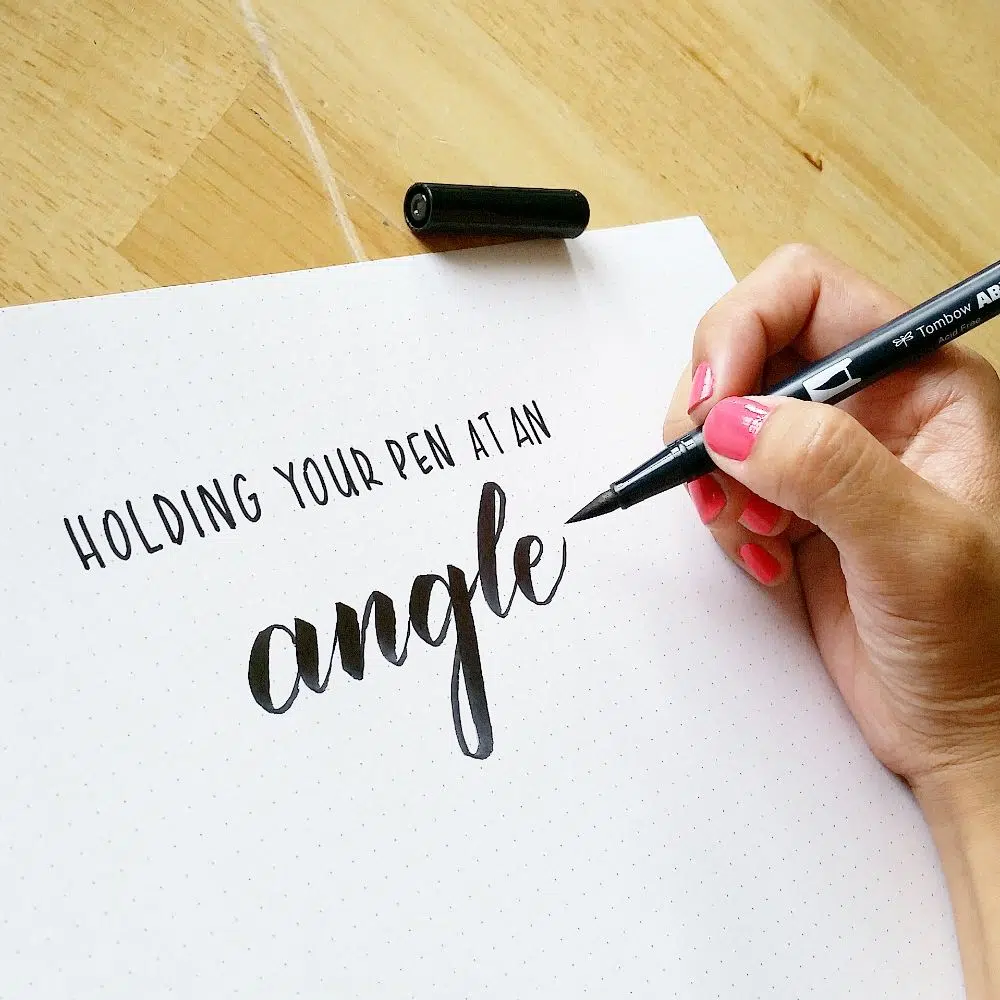 HOLDING YOUR PEN AT AN
angle
Tombow AB
Acid Free